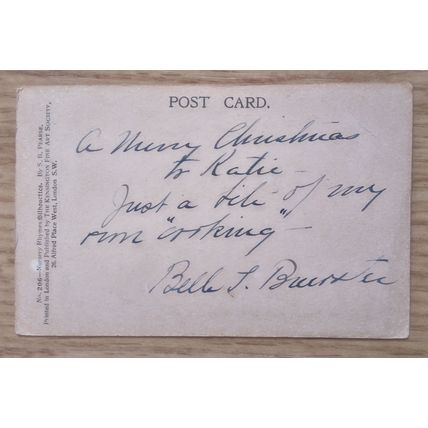 POST CARD.
A Merry Christmas
to Katie —
Just a bite of my
own "cooking" —
Belle S. Brewster
No. 206—Nursery Rhymes Silhouettes. By S. B. Pearse.
Printed in London and Published by THE KENSINGTON FINE ART SOCIETY,
26 Alfred Place West, London S.W.